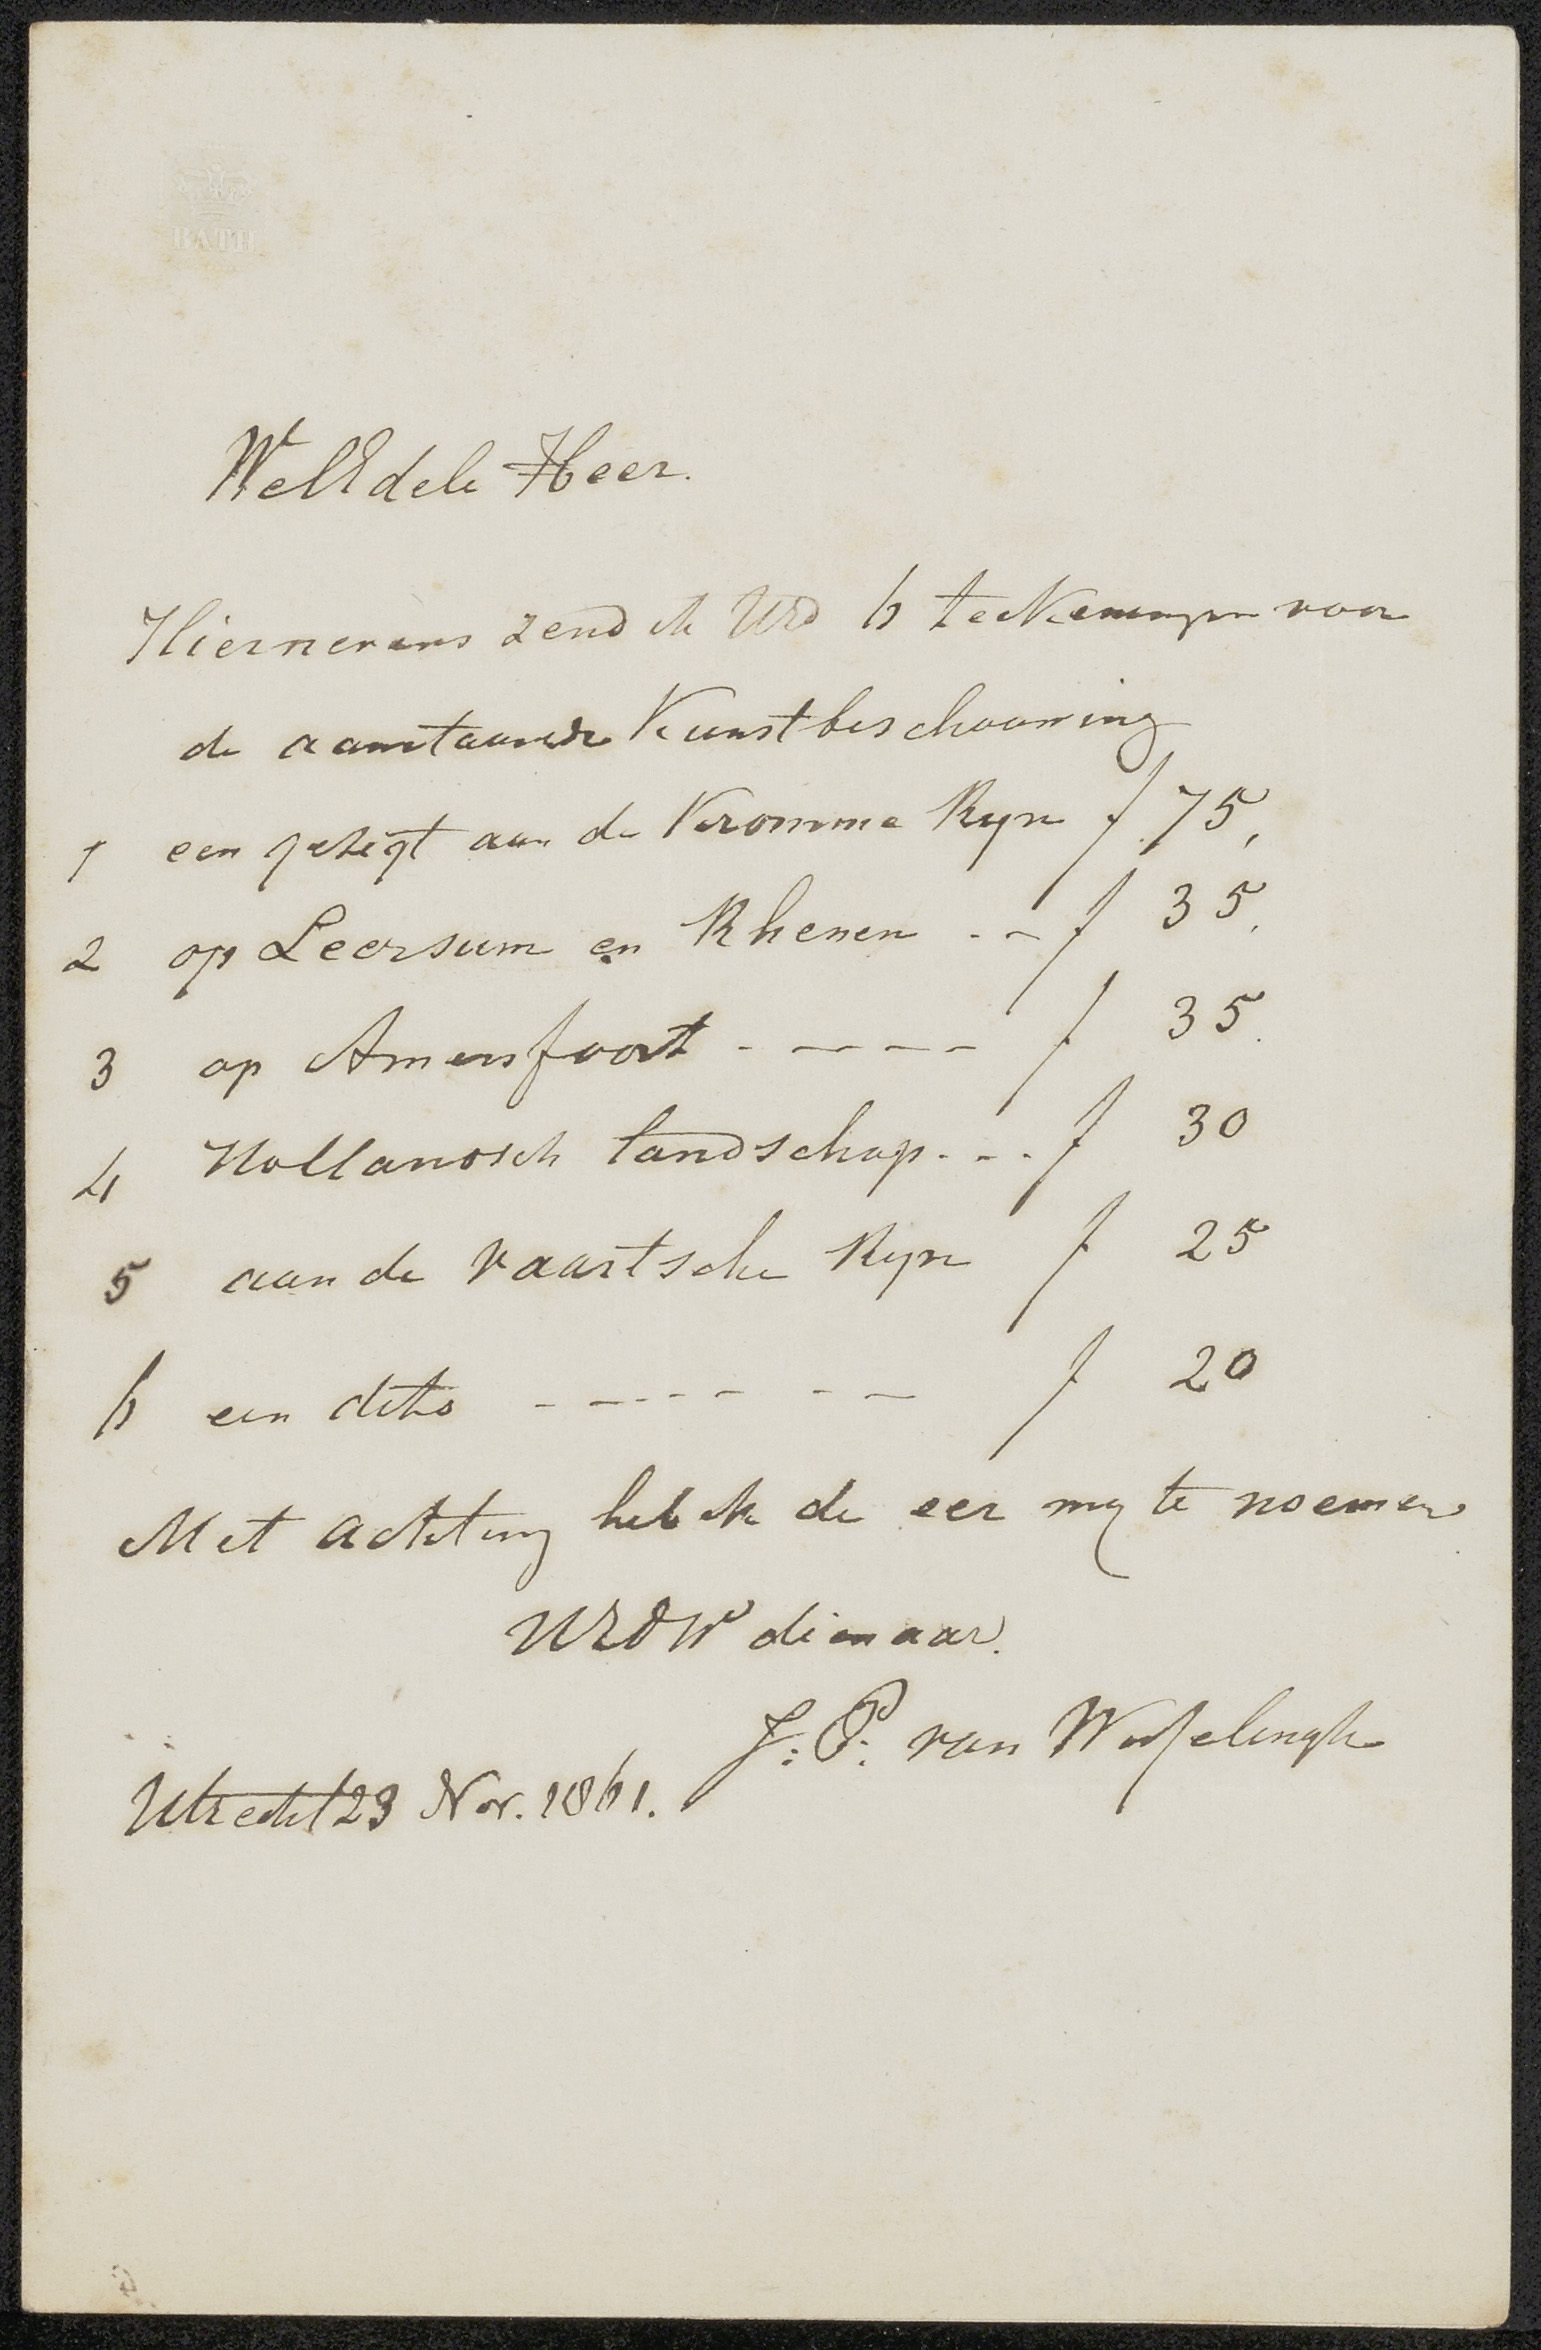 BATH
WelEdele Heer.
Hiernevens zend ik UEd 6 teekeningen voor
de aanstaande Kunstbeschouwing
1 een gezigt aan de Kromme Ryn f 75,
2 op Leersum en Rhenen - - f 35,
3 op Amersfoort - - - - - f 35.
4 Hollandsch landschap - - - f 30
5 aan de vaartsche Ryn f 25
6 een dito - - - - - - - f 20
Met achting heb ik de eer my te noemen
UEDW dienaar.
J: P. van Wisselingh
Utrecht 23 Nov. 1861.